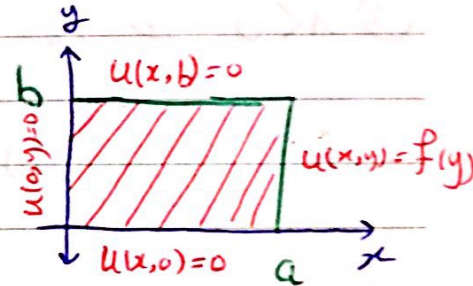 y
u(x,b)=0
b
u(0,y)=0
u(x,y)=f(y)
u(x,0)=0
a
x